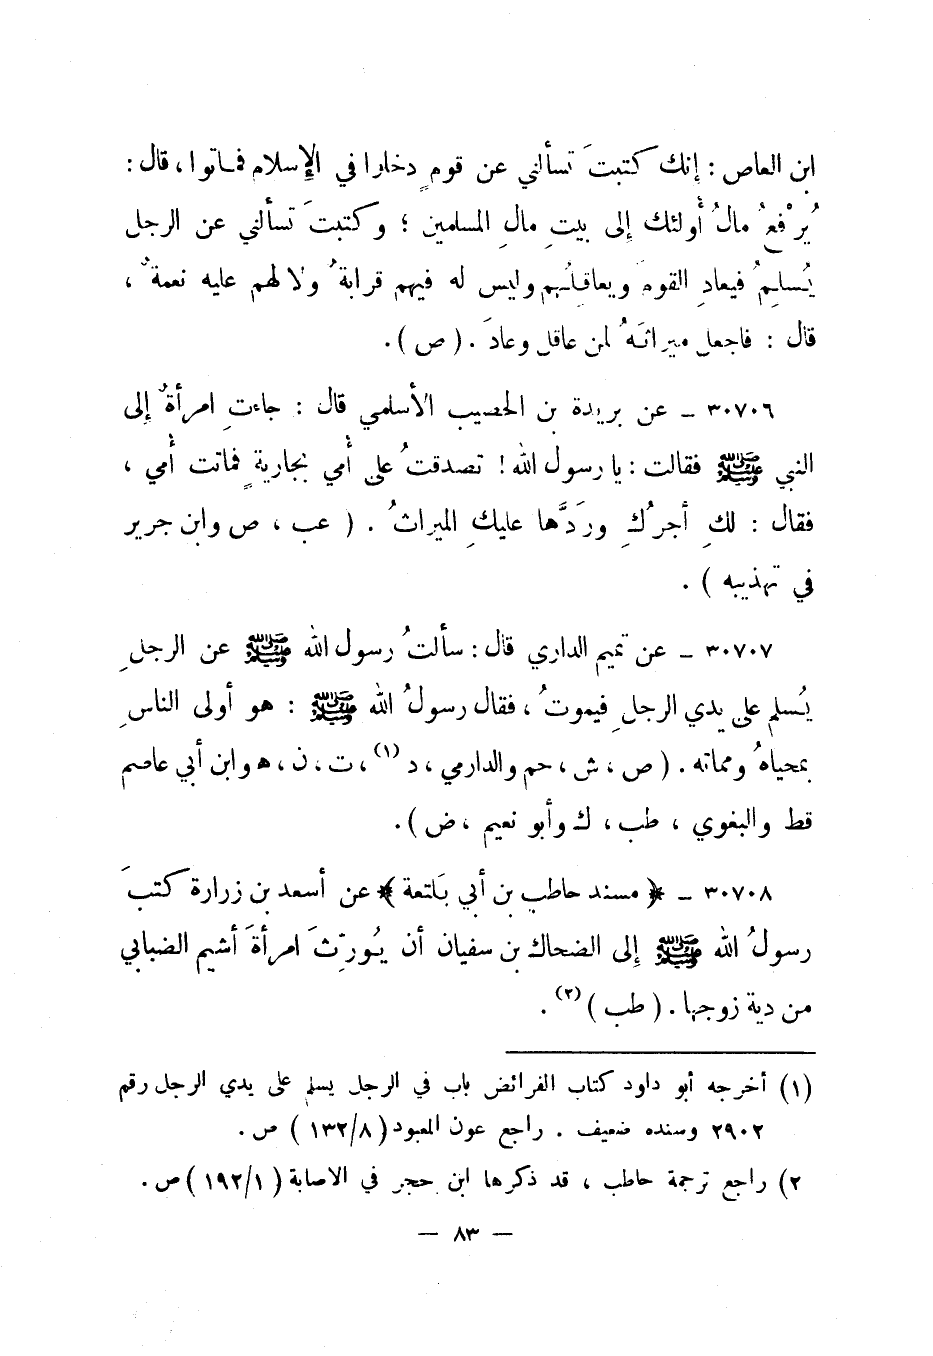 ابن العاص : إنك كتبتَ تسألني عن قومٍ دخلوا في الإِسلام فماتوا ، قال :
يُرْفعُ مالُ أولئك إلى بيتِ مالِ المسلمين ؛ وكتبتَ تسألني عن الرجل
يُسلِمُ فيعادِ القومَ ويعاقلُهم وليس له فيهم قرابةٌ ولا لهم عليه نعمةٌ ،
قال : فاجعل ميراثَهُ لمن عاقل وعادَ . ( ص ) .
٣٠٧٠٦ ـ عن بريدة بن الحصيب الأسلمي قال : جاءتِ امرأةٌ إلى
النبي ﷺ فقالت : يا رسول الله ! تصدقتُ على أمي بجاريةٍ فماتت أمي ،
فقال : لكِ أجرُكِ وردَّها عليكِ الميراثُ . ( عب ، ص وابن جرير
في تهذيبه ) .
٣٠٧٠٧ ـ عن تميم الداري قال : سألتُ رسول الله ﷺ عن الرجلِ
يُسلم على يدي الرجلِ فيموتُ ، فقال رسولُ الله ﷺ : هو أولى الناسِ
بمحياهُ ومماته . ( ص ، ش ، حم والدارمي ، د (١) ، ت ، ن ، ه وابن أبي عاصم
قط والبغوي ، طب ، ك وأبو نعيم ، ض ) .
٣٠٧٠٨ ـ ﴿ مسند حاطب بن أبي بَلتعة ﴾ عن أسعد بن زرارة كتبَ
رسولُ الله ﷺ إلى الضحاك بن سفيان أن يُورِّثَ امرأةَ أشيم الضبابي
من دية زوجها . ( طب ) (٢) .
(١) أخرجه أبو داود كتاب الفرائض باب في الرجل يسلم على يدي الرجل رقم
٢٩٠٢ وسنده ضعيف . راجع عون المعبود ( ٨/١٣٢ ) ص .
٢) راجع ترجمة حاطب ، قد ذكرها ابن حجر في الاصابة ( ١/١٩٢ ) ص .
— ٨٣ —